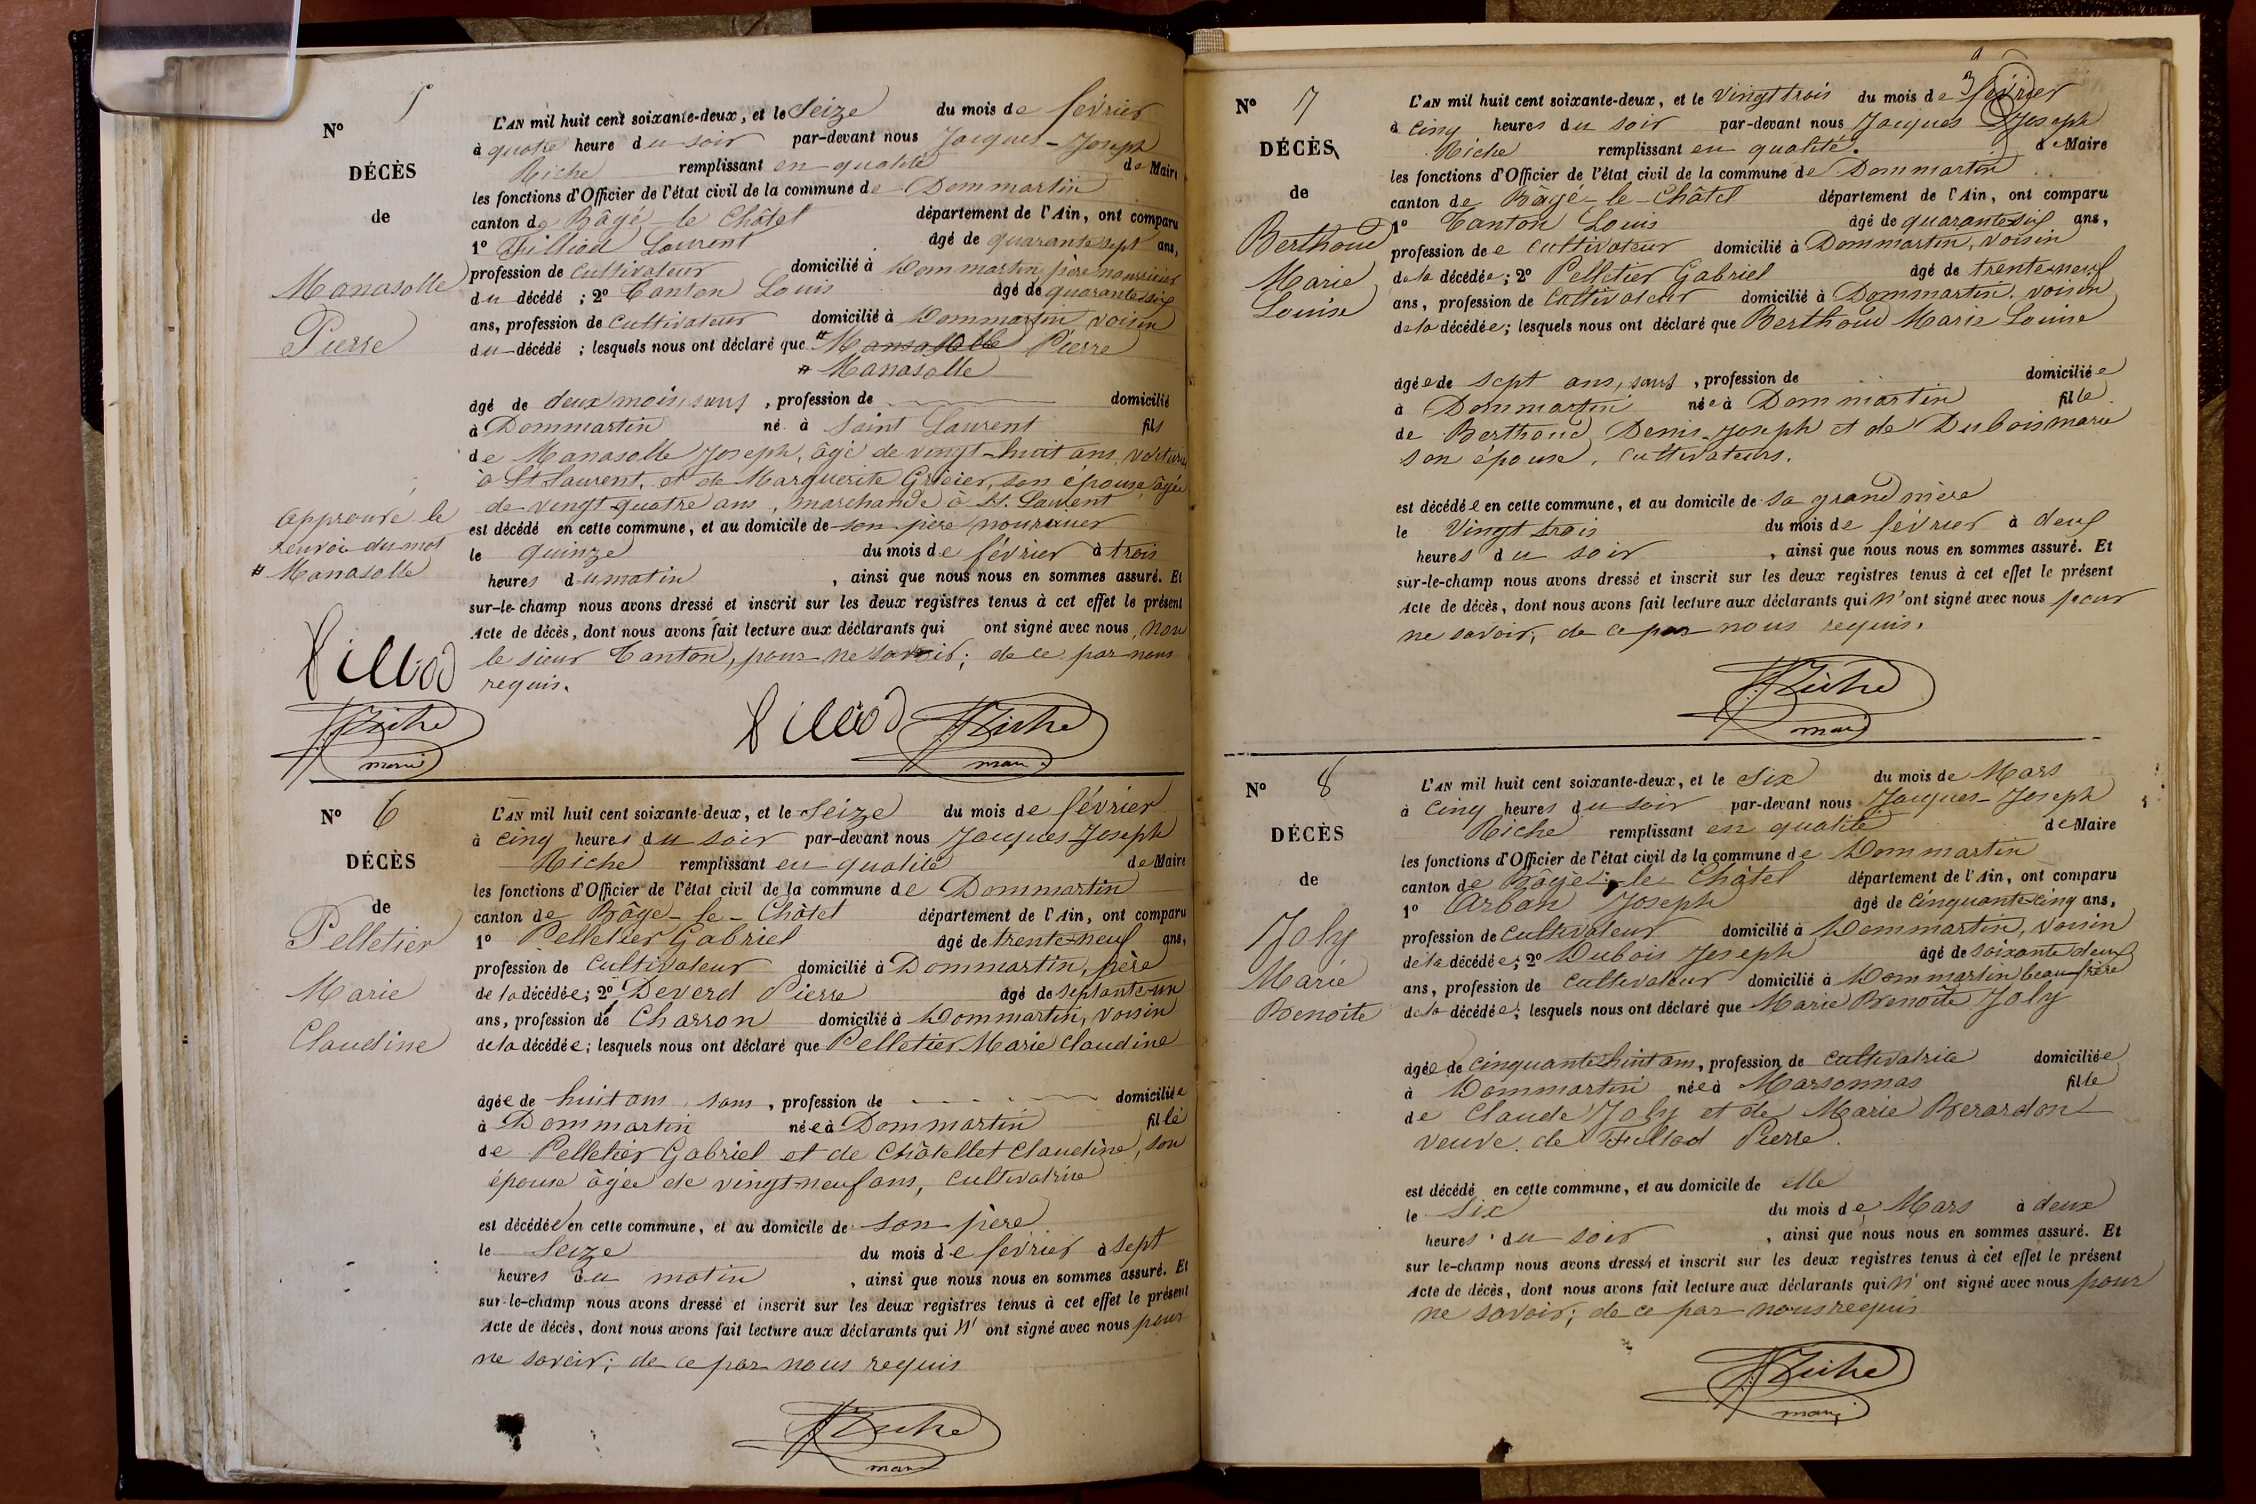 N° 5
DÉCÈS
de
Manasolle
Pierre
L'AN mil huit cent soixante-deux, et le Seize du mois de février
à quatre heure du soir par-devant nous Jacques-Joseph
Riche remplissant en qualité de Maire
les fonctions d'Officier de l'état civil de la commune de Dommartin
canton de Bâgé-le-Châtel département de l'Ain, ont comparu
1° Fillion Laurent âgé de quarante sept ans,
profession de cultivateur domicilié à Dommartin, père nourricier
du décédé ; 2° Canton Louis âgé de quarante six
ans, profession de cultivateur domicilié à Dommartin voisin
du décédé ; lesquels nous ont déclaré que # Pierre
# Manasolle
âgé de deux mois, sans , profession de domicilié
à Dommartin né à Saint Laurent fils
de Manasolle Joseph, âgé de vingt-huit ans,
à St Laurent, et de Marguerite son épouse, âgée
de vingt quatre ans, marchande à St. Laurent
est décédé en cette commune, et au domicile de son père nourricier
le quinze du mois de février à trois
heures du matin , ainsi que nous nous en sommes assuré. Et
sur-le-champ nous avons dressé et inscrit sur les deux registres tenus à cet effet le présent
Acte de décès, dont nous avons fait lecture aux déclarants qui ont signé avec nous, non
le sieur Canton, pour ne savoir ; de ce par nous
requis.
Approuvé le
renvoi du mot
# Manasolle
Fillion
JJ Riche
maire
Fillion JJ Riche
maire
N° 6
DÉCÈS
de
Pelletier
Marie
Claudine
L'AN mil huit cent soixante-deux, et le Seize du mois de février
à cinq heures du soir par-devant nous Jacques-Joseph
Riche remplissant en qualité de Maire
les fonctions d'Officier de l'état civil de la commune de Dommartin
canton de Bâgé-le-Châtel département de l'Ain, ont comparu
1° Pelletier Gabriel âgé de trente-neuf ans,
profession de cultivateur domicilié à Dommartin, père
de la décédée; 2° Deverd Pierre âgé de septante-un
ans, profession de Charron domicilié à Dommartin, voisin
de la décédée; lesquels nous ont déclaré que Pelletier Marie Claudine
âgée de huit ans, sans , profession de domiciliée
à Dommartin née à Dommartin fille
de Pelletier Gabriel et de Châtellet Claudine, son
épouse âgée de vingt-neuf ans, cultivatrice
est décédée en cette commune, et au domicile de son père
le Seize du mois de février à sept
heures du matin , ainsi que nous nous en sommes assuré. Et
sur-le-champ nous avons dressé et inscrit sur les deux registres tenus à cet effet le présent
Acte de décès, dont nous avons fait lecture aux déclarants qui n'ont signé avec nous pour
ne savoir; de ce par nous requis
JJ Riche
maire
N° 7
DÉCÈS
de
Berthoud
Marie
Louise
L'AN mil huit cent soixante-deux, et le vingt trois du mois de février
à cinq heures du soir par-devant nous Jacques Joseph
Riche remplissant en qualité de Maire
les fonctions d'Officier de l'état civil de la commune de Dommartin
canton de Bâgé-le-Châtel département de l'Ain, ont comparu
1° Canton Louis âgé de quarante-six ans,
profession de cultivateur domicilié à Dommartin, voisin
de la décédée; 2° Pelletier Gabriel âgé de trente-neuf
ans, profession de cultivateur domicilié à Dommartin, voisin
de la décédée; lesquels nous ont déclaré que Berthoud Marie Louise
âgée de sept ans, sans , profession de domiciliée
à Dommartin née à Dommartin fille
de Berthoud Denis-Joseph et de Dubois marie
son épouse, cultivateurs.
est décédée en cette commune, et au domicile de sa grand mère
le vingt trois du mois de février à deux
heures du soir , ainsi que nous nous en sommes assuré. Et
sur-le-champ nous avons dressé et inscrit sur les deux registres tenus à cet effet le présent
Acte de décès, dont nous avons fait lecture aux déclarants qui n'ont signé avec nous pour
ne savoir, de ce par nous requis.
JJ Riche
maire
N° 8
DÉCÈS
de
Joly
Marie
Benoite
L'AN mil huit cent soixante-deux, et le Six du mois de Mars
à cinq heures du soir par-devant nous Jacques-Joseph
Riche remplissant en qualité de Maire
les fonctions d'Officier de l'état civil de la commune de Dommartin
canton de Bâgé-le-Châtel département de l'Ain, ont comparu
1° Arban Joseph âgé de cinquante-cinq ans,
profession de cultivateur domicilié à Dommartin, voisin
de la décédée; 2° Dubois Joseph âgé de soixante deux
ans, profession de cultivateur domicilié à Dommartin beau-frère
de la décédée; lesquels nous ont déclaré que Marie Benoite Joly
âgée de cinquante huit ans, profession de cultivatrice domiciliée
à Dommartin née à Marsonnas fille
de Claude Joly et de Marie Berardon
veuve de Pierre.
est décédé en cette commune, et au domicile de elle
le Six du mois de Mars à deux
heures du soir , ainsi que nous nous en sommes assuré. Et
sur le-champ nous avons dressé et inscrit sur les deux registres tenus à cet effet le présent
Acte de décès, dont nous avons fait lecture aux déclarants qui n'ont signé avec nous pour
ne savoir; de ce par nous requis
JJ Riche
maire